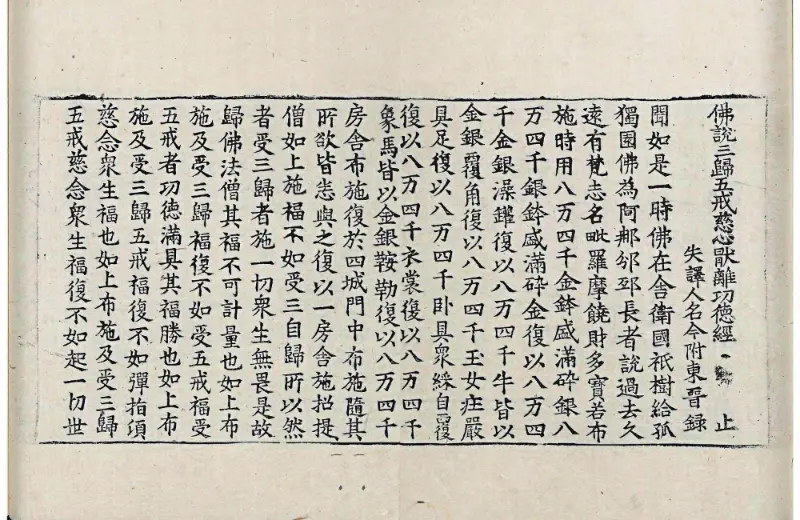 佛說三歸五戒慈心猒離功德經 止
失譯人名今附東晉録
聞如是一時佛在舎衛國祇樹給孤
獨園佛為阿那邠邸長者說過去久
遠有梵志名毗羅摩饒財多寶若布
施時用八万四千金鉢盛滿碎銀八
万四千銀鉢盛滿碎金復以八万四
千金銀澡鑵復以八万四千牛皆以
金銀覆角復以八万四千玉女庄嚴
具足復以八万四千卧具衆綵自覆
復以八万四千衣裳復以八万四千
象馬皆以金銀鞍勒復以八万四千
房舎布施復於四城門中布施隨其
所欲皆悉與之復以一房舎施招提
僧如上施福不如受三自歸所以然
者受三歸者施一切衆生無畏是故
歸佛法僧其福不可計量也如上布
施及受三歸福復不如受五戒福受
五戒者功德滿具其福勝也如上布
施及受三歸五戒福復不如彈指須
慈念衆生福也如上布施及受三歸
五戒慈念衆生福復不如起一切世